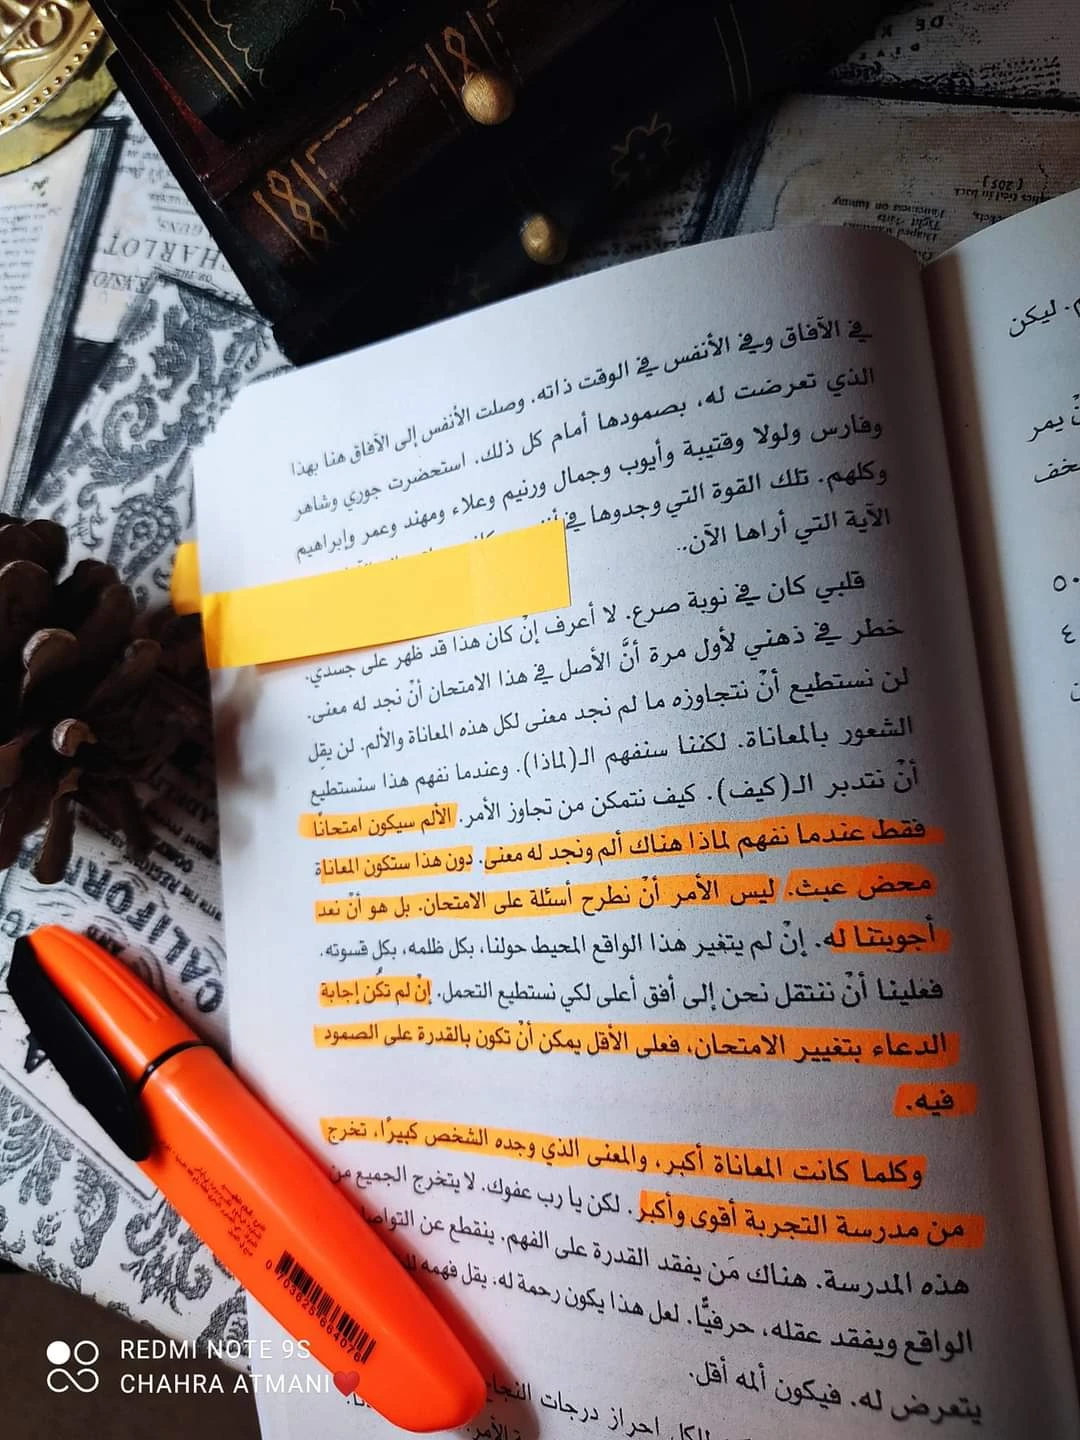 في الآفاق وفي الأنفس في الوقت ذاته. وصلت الأنفس إلى الآفاق هنا بهذا
الذي تعرضت له، بصمودها أمام كل ذلك. استحضرت جوري وشاهر
وفارس ولولا وقتيبة وأيوب وجمال ورنيم وعلاء ومهند وعمر وإبراهيم
وكلهم. تلك القوة التي وجدوها في
الآية التي أراها الآن..
قلبي كان في نوبة صرع. لا أعرف إنْ كان هذا قد ظهر على جسدي.
خطر في ذهني لأول مرة أنَّ الأصل في هذا الامتحان أنْ نجد له معنى.
لن نستطيع أنْ نتجاوزه ما لم نجد معنى لكل هذه المعاناة والألم. لن يقِل
الشعور بالمعاناة. لكننا سنفهم الـ(لماذا). وعندما نفهم هذا سنستطيع
أنْ نتدبر الـ(كيف). كيف نتمكن من تجاوز الأمر. الألم سيكون امتحانًا
فقط عندما نفهم لماذا هناك ألم ونجد له معنى. دون هذا ستكون المعاناة
محض عبث. ليس الأمر أنْ نطرح أسئلة على الامتحان. بل هو أنْ نعد
أجوبتنا له. إنْ لم يتغير هذا الواقع المحيط حولنا، بكل ظلمه، بكل قسوته.
فعلينا أنْ ننتقل نحن إلى أفق أعلى لكي نستطيع التحمل. إنْ لم تكُن إجابة
الدعاء بتغيير الامتحان، فعلى الأقل يمكن أنْ تكون بالقدرة على الصمود
فيه.
وكلما كانت المعاناة أكبر، والمعنى الذي وجده الشخص كبيرًا، تخرج
من مدرسة التجربة أقوى وأكبر. لكن يا رب عفوك. لا يتخرج الجميع من
هذه المدرسة. هناك مَن يفقد القدرة على الفهم. ينقطع عن
الواقع ويفقد عقله، حرفيًّا. لعل هذا يكون رحمة له. يقل فهمه
يتعرض له. فيكون ألمه أقل.
احراز درجات
ليكن
يمر
CHARLOT
CALIFORN
REDMI NOTE 9S
CHAHRA ATMANI❤